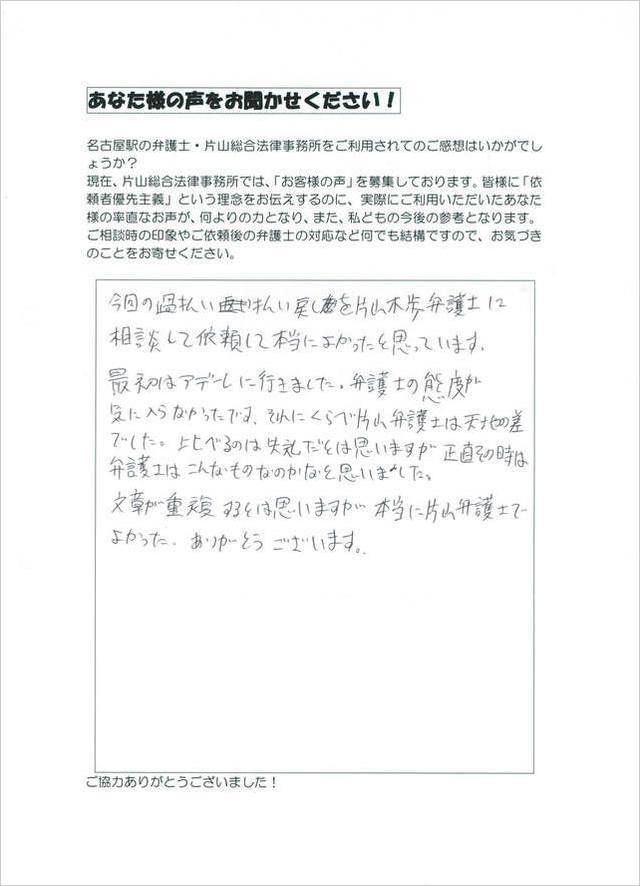 あなた様の声をお聞かせください！
名古屋駅の弁護士・片山総合法律事務所をご利用されてのご感想はいかがでし
ょうか？
現在、片山総合法律事務所では、「お客様の声」を募集しております。皆様に「依
頼者優先主義」という理念をお伝えするのに、実際にご利用いただいたあなた
様の率直なお声が、何よりの力となり、また、私どもの今後の参考となります。
ご相談時の印象やご依頼後の弁護士の対応など何でも結構ですので、お気づき
のことをお寄せください。
今回の過払い払い戻しを片山木歩弁護士に
相談して依頼して本当によかったと思っています。
最初はアデーレに行きました。弁護士の態度が
気に入らなかったです。それにくらべ片山弁護士は天地の差
でした。比べるのは失礼だとは思いますが正直その時は
弁護士はこんなものなのかなと思いました。
文章が重複するとは思いますが本当に片山弁護士で
よかった。ありがとうございます。
ご協力ありがとうございました！